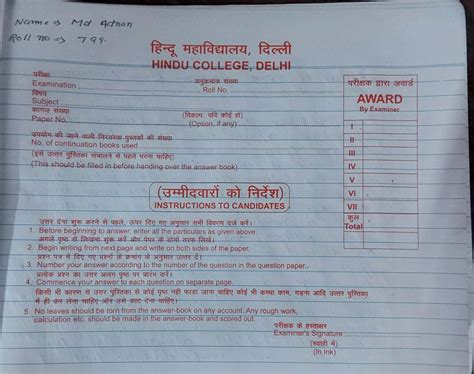 Name → Md Adnan
Roll no → 799
हिन्दू महाविद्यालय, दिल्ली
HINDU COLLEGE, DELHI
परीक्षा
Examination
अनुक्रमांक संख्या
Roll No.
विषय
Subject
कागज संख्या
Paper No.
(विकल्प, यदि कोई हो)
(Option, if any)
उपयोग की जाने वाली निरन्तरता पुस्तकों की संख्या
No. of continuation books used
(इसे उत्तर पुस्तिका संभालने से पहले भरना चाहिए)
(This should be filled in before handing over the answer book)
परीक्षक द्वारा अवार्ड
AWARD
By Examiner
I
II
III
IV
V
VI
VII
कुल
Total
(उम्मीदवारों को निर्देश)
INSTRUCTIONS TO CANDIDATES
उत्तर देना शुरू करने से पहले, ऊपर दिए गए अनुसार सभी विवरण दर्ज करें।
1. Before beginning to answer, enter all the particulars as given above.
अगले पृष्ठ से लिखना शुरू करें और पेपर के दोनों तरफ लिखें।
2. Begin writing from next page and write on both sides of the paper.
प्रश्न पत्र में दिए गए प्रश्नों के क्रमांक के अनुसार उत्तर दें।
3. Number your answer according to the number of the question in the question paper.
प्रत्येक प्रश्न का उत्तर अलग पृष्ठ पर प्रारंभ करें।
4. Commence your answer to each question on separate page.
किसी भी कारण से उत्तर पुस्तिका से कोई पृष्ठ नहीं फाड़ा जाना चाहिए कोई भी कच्चा काम, गड़ना आदि उत्तर पुस्तिका
में ही कर लेना चाहिए और उसे काट देना चाहिए।
5. No leaves should be torn from the answer-book on any account. Any rough work,
calculation etc. should be made in the answer-book and scored out.
परीक्षक के हस्ताक्षर
Examiner's Signature
(स्याही में)
(In Ink)